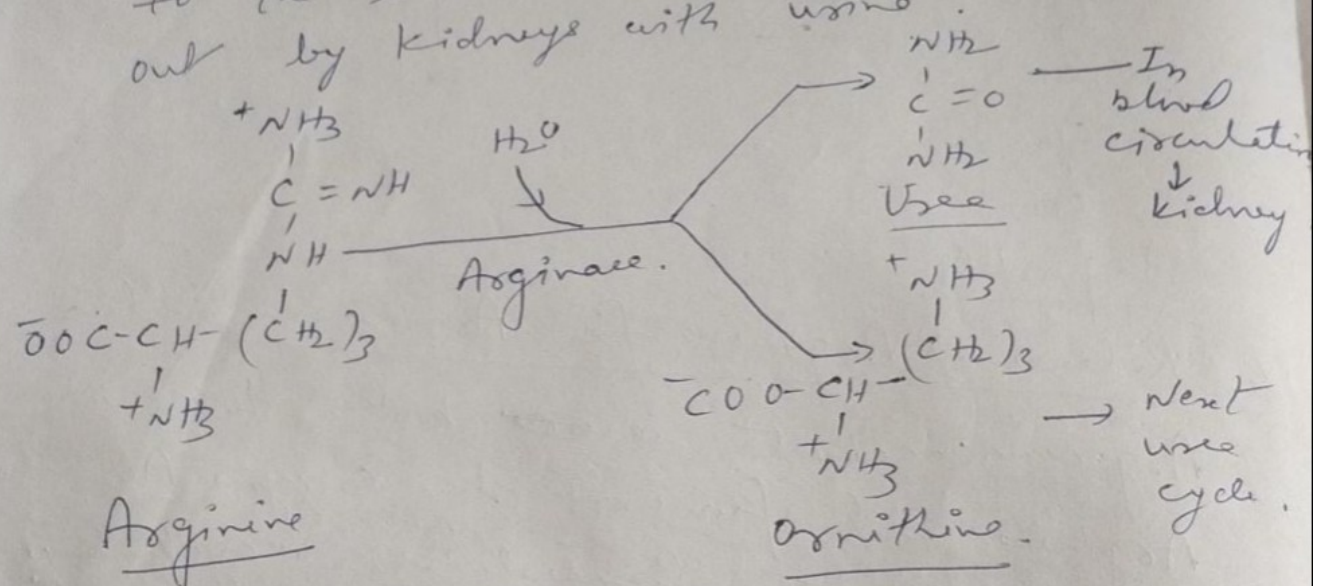 out by kidneys with urine.
+NH3
C = NH
NH
-OOC-CH-(CH2)3
+NH3
Arginine
H2O
Arginase.
NH2
C = O
NH2
Urea
In
blood
circulation
↓
kidney
+NH3
(CH2)3
-COO-CH-
+NH3
Ornithine.
→ Next
urea
cycle.